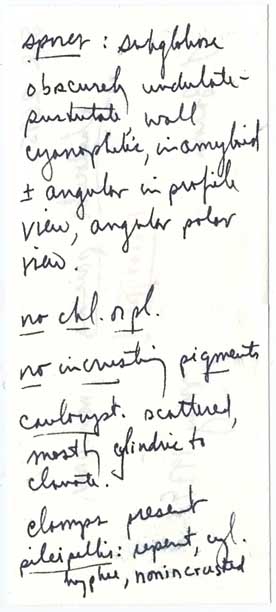 spores : subglobose
obscurely undulate-
pustulate, wall
cyanophilic, inamyloid
± angular in profile
view, angular polar
view.
no chl. or pl.
no incrusting pigments
caulocyst. scattered,
mostly cylindric to
clavate.
clamps present
pileipellis: repent, cyl.
hyphae, nonincrusted